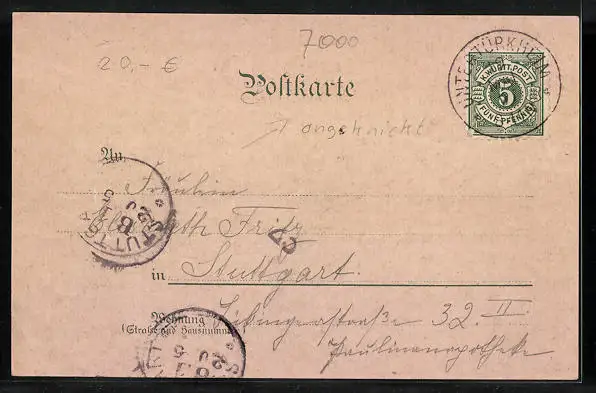 20,- €
7000
Postkarte
angeknickt
UNTERTÜRKHEIM
K. WÜRTT. POST
5
FÜNF PFENNIG
An
Fräulein
Elisabeth Fritz
STUTTG
23
in Stuttgart.
Wohnung
(Straße und Hausnummer)
32 II
Paulinenapotheke